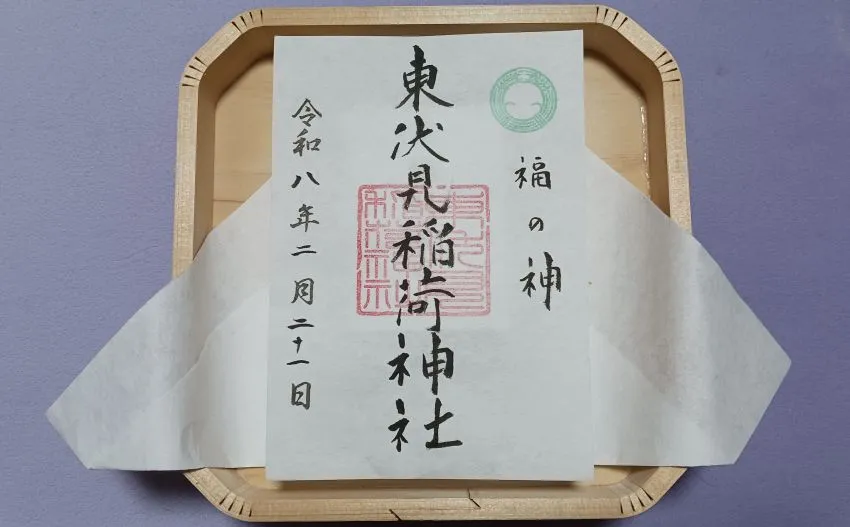 福の神
東伏見稲荷神社
令和八年二月二十一日